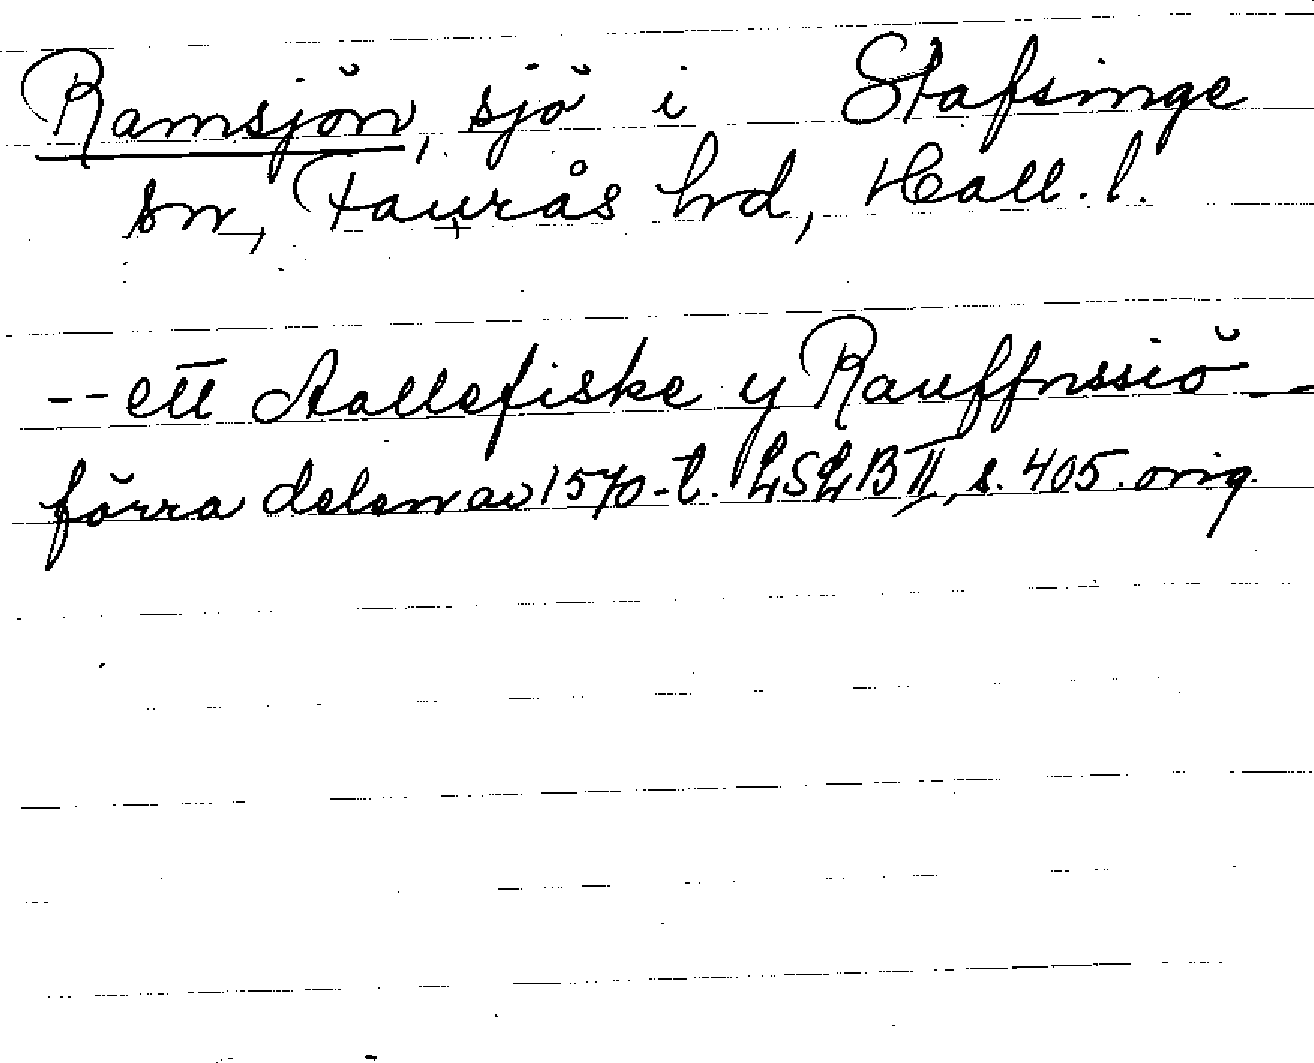 Ramsjön, sjö i Stafsinge
sn, Faurås hrd, Hall. l.
-- ett Aallefiske y Rauffnssiö -
förra delen av 1570-t. LSLB II, s. 405. orig.